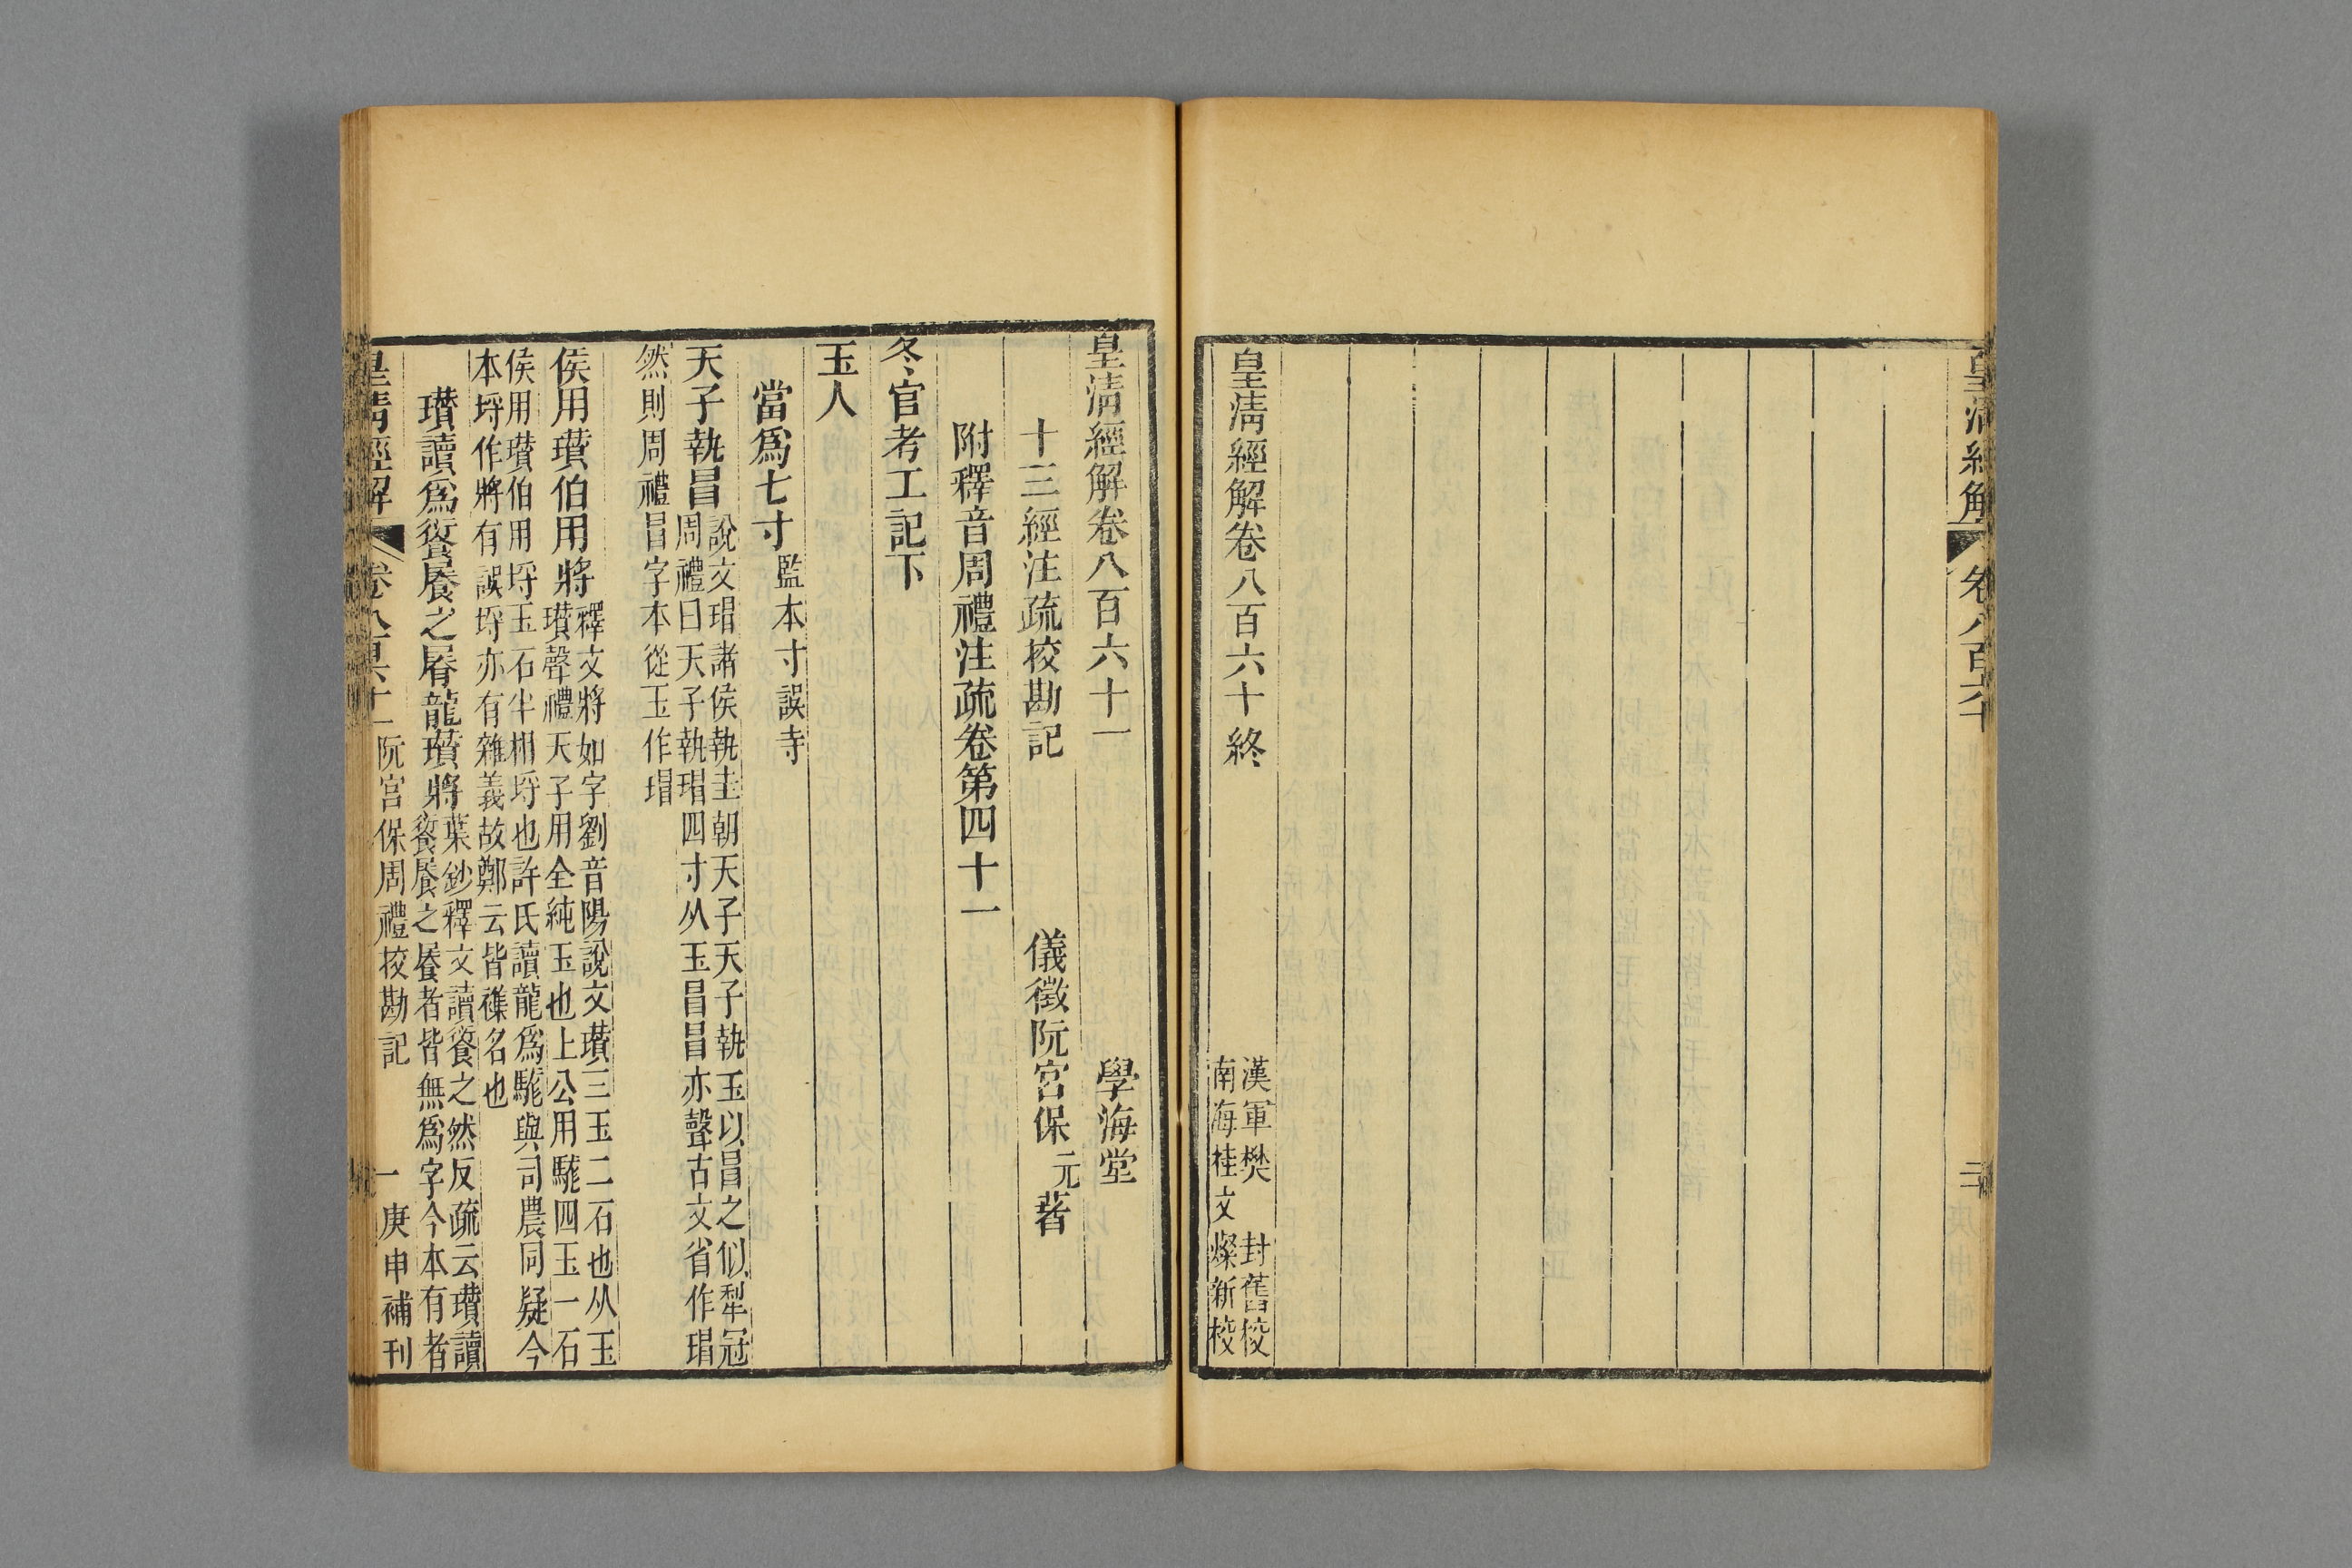 皇清經解
卷八百六十
三
皇清經解卷八百六十終
漢軍樊封舊校
南海桂文燦新校
皇清經解卷八百六十一
學海堂
十三經注疏挍勘記
儀徵阮宮保元著
附釋音周禮注疏卷第四十一
冬官考工記下
玉人
當爲七寸監本寸誤寺
天子執冒說文瑁諸侯執圭朝天子天子執玉以冒之似犁冠
周禮曰天子執瑁四寸从玉冒冒亦聲古文省作瑁
然則周禮冒字本從玉作瑁
侯用瓚伯用將釋文將如字劉音陽說文瓚三玉二石也从玉
瓚聲禮天子用全純玉也上公用駹四玉一石
侯用瓚伯用埒玉石半相埒也許氏讀龍爲駹與司農同疑今
本埒作將有誤埒亦有雜義故鄭云皆襍名也
瓚讀爲餐屬之屬龍瓚將葉鈔釋文讀餐之然反疏云瓚讀
餐屬之屬者皆無爲字今本有者
皇清經解
卷八百六十一
阮宮保周禮挍勘記
一
庚申補刊